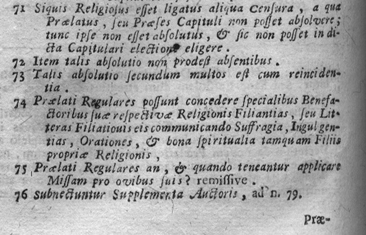 71 Siquis Religiosus esset ligatus aliqua Censura, a qua
Prælatus, seu Præses Capituli non posset absolvere;
tunc ipse non esset absolutus, & sic non posset in di-
cta Capitulari electione eligere.
72 Item talis absolutio non prodest absentibus.
73 Talis absolutio secundum multos est cum reinciden-
tia.
74 Prælati Regulares possunt concedere specialibus Benefa-
ctoribus suæ respectivæ Religionis Filiantias, seu Lit-
teras Filiationis eis communicando Suffragia, Ingulgen-
tias, Orationes, & bona spiritualia tamquam Filiis
propriæ Religionis,
75 Prælati Regulares an, & quando teneantur applicare
Missam pro ovibus suis? remissive.
76 Subnectuntur Supplementa Auctoris, ad n. 79.
Præ-